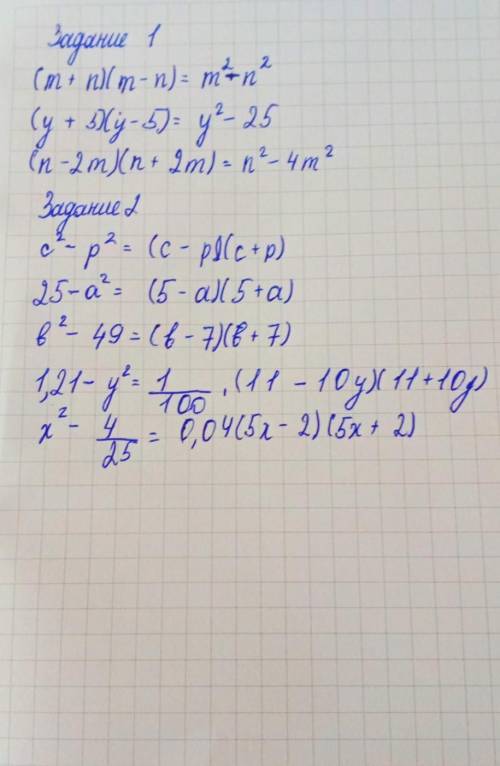 Задание 1
(m + n)(m - n) = m² - n²
(y + 5)(y - 5) = y² - 25
(n - 2m)(n + 2m) = n² - 4m²
Задание 2
c² - p² = (c - p)(c + p)
25 - a² = (5 - a)(5 + a)
в² - 49 = (в - 7)(в + 7)
1,21 - y² = 1/100 · (11 - 10y)(11 + 10y)
x² - 4/25 = 0,04(5x - 2)(5x + 2)